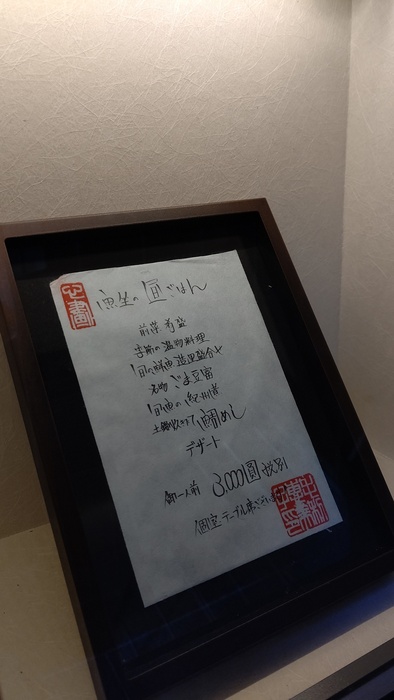 魚生の昼ごはん
前菜 彩盛
季節の温物料理
旬の鮮魚 造里盛合せ
名物 ごま豆富
土鍋炊き 鯛めし
デザート
御一人前 3,000圓 税別
個室テーブル席ございます